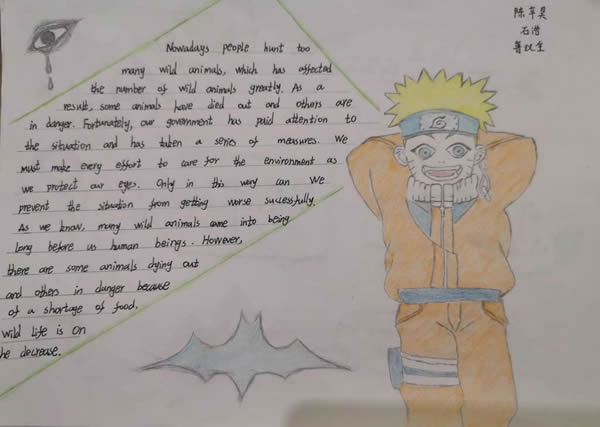 Nowadays people hunt too
many wild animals, which has affected
the number of wild animals greatly. As a
result, some animals have died out and others are
in danger. Fortunately, our government has paid attention to
the situation and has taken a series of measures. We
must make every effort to care for the environment as
we protect our eyes. Only in this way can We
prevent the situation from getting worse successfully.
As we know, many wild animals came into being
long before us human beings. However,
there are some animals dying out
and others in danger because
of a shortage of food.
Wild life is on
he decrease.